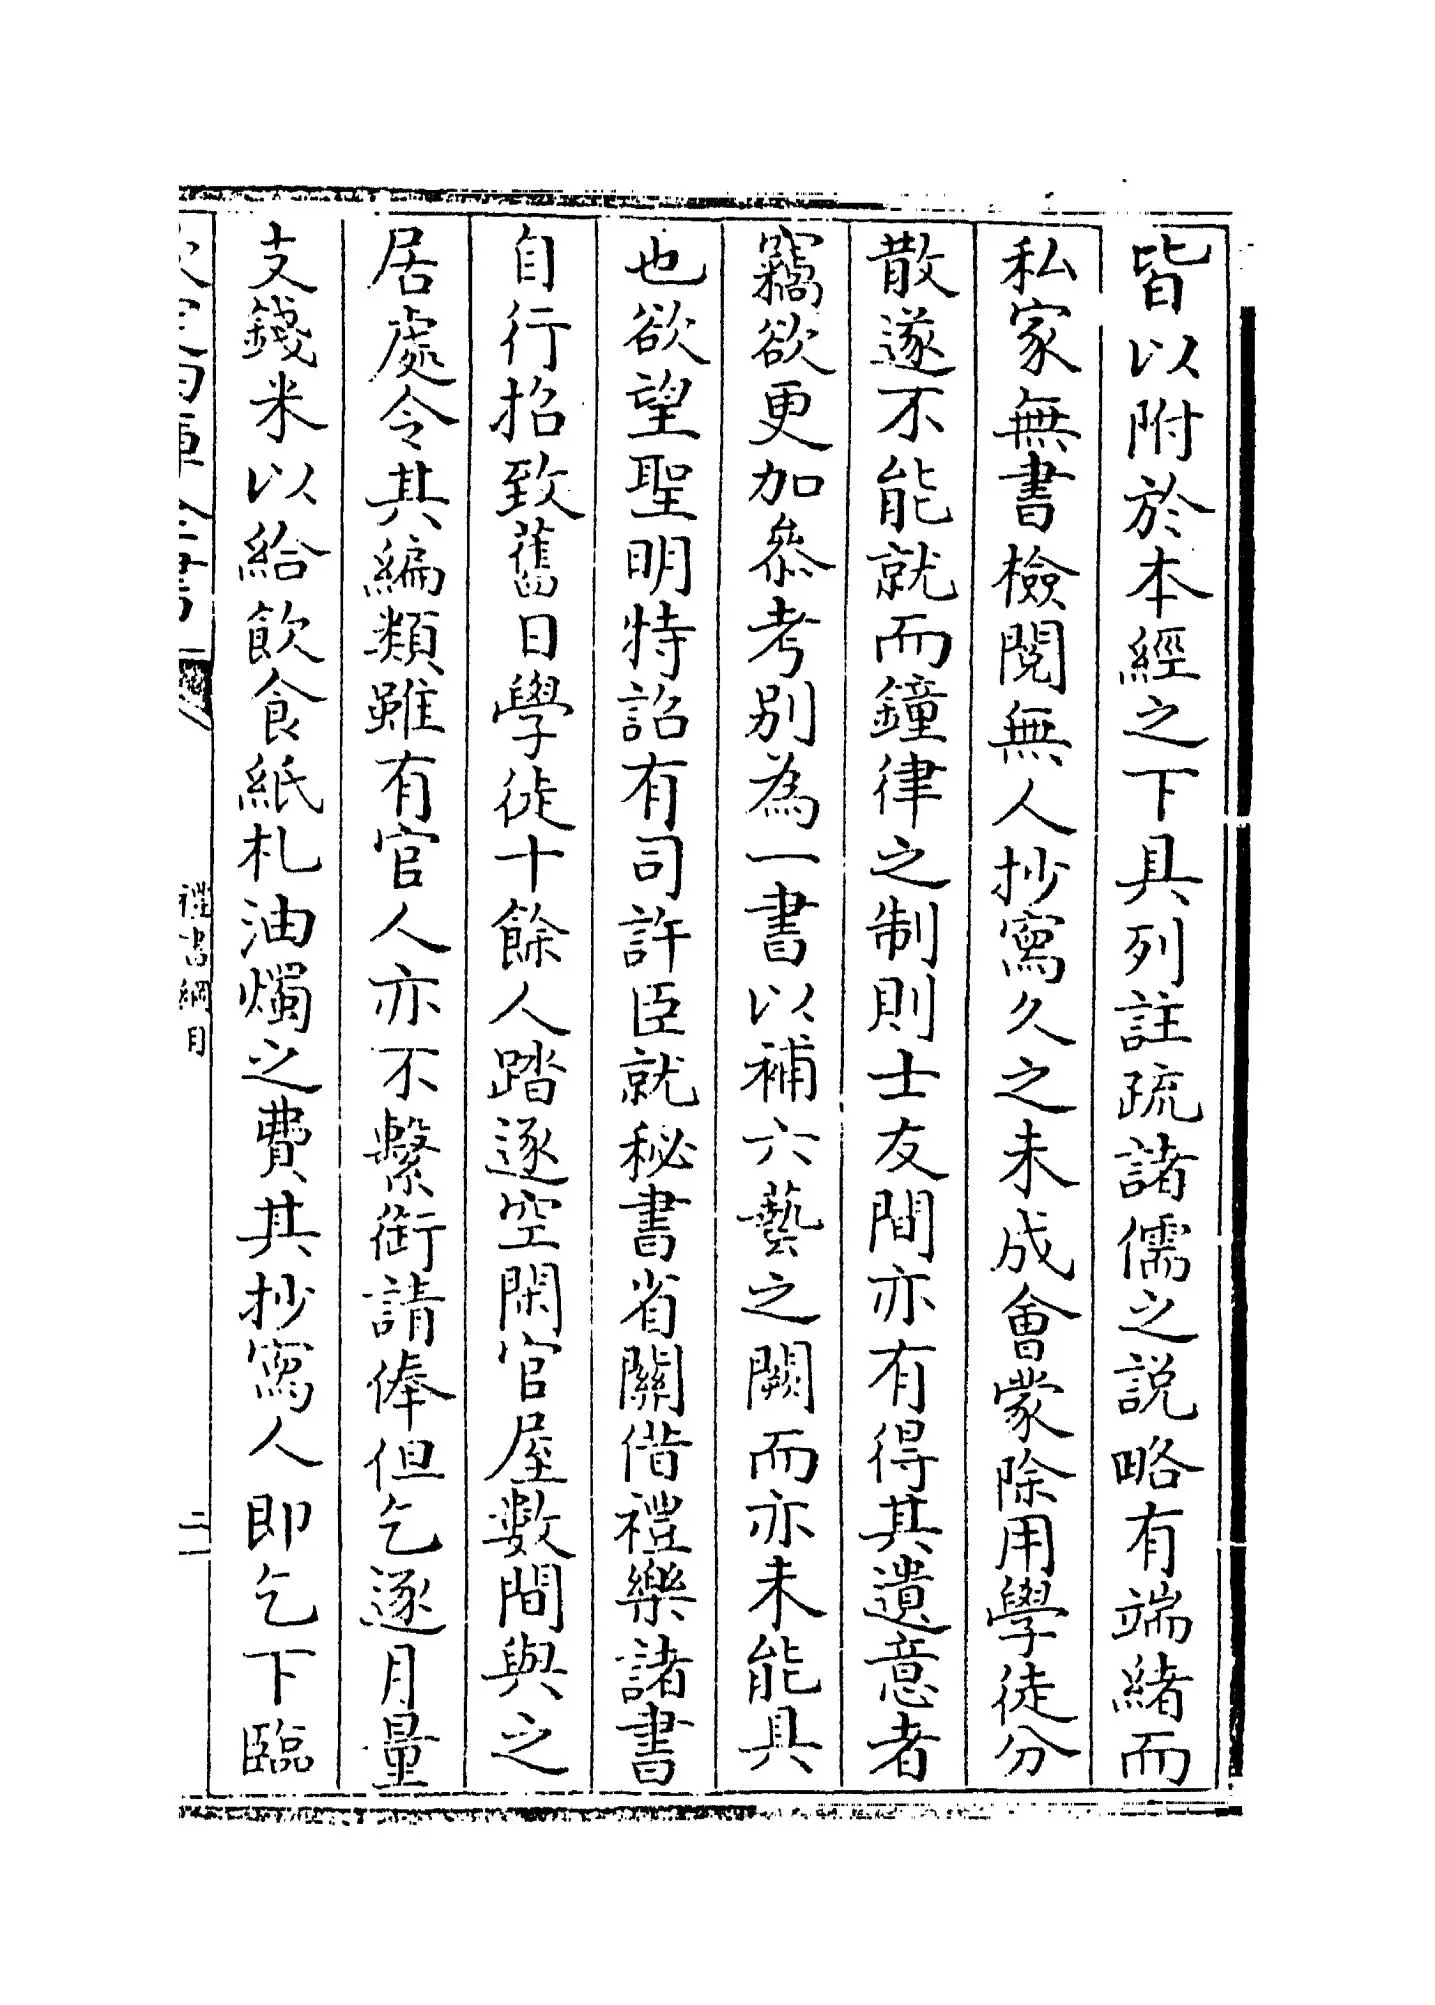 皆以附於本經之下具列註疏諸儒之説略有端緒而
私家無書檢閱無人抄寫久之未成會蒙除用學徒分
散遂不能就而鐘律之制則士友間亦有得其遺意者
竊欲更加叅考别為一書以補六藝之闕而亦未能具
也欲望聖明特詔有司許臣就秘書省關借禮樂諸書
自行招致舊日學徒十餘人踏逐空閑官屋數間與之
居處令其編類雖有官人亦不繫銜請俸但乞逐月量
支錢米以給飲食紙札油燭之費其抄寫人即乞下臨
欽定四庫全書
禮書綱目
二